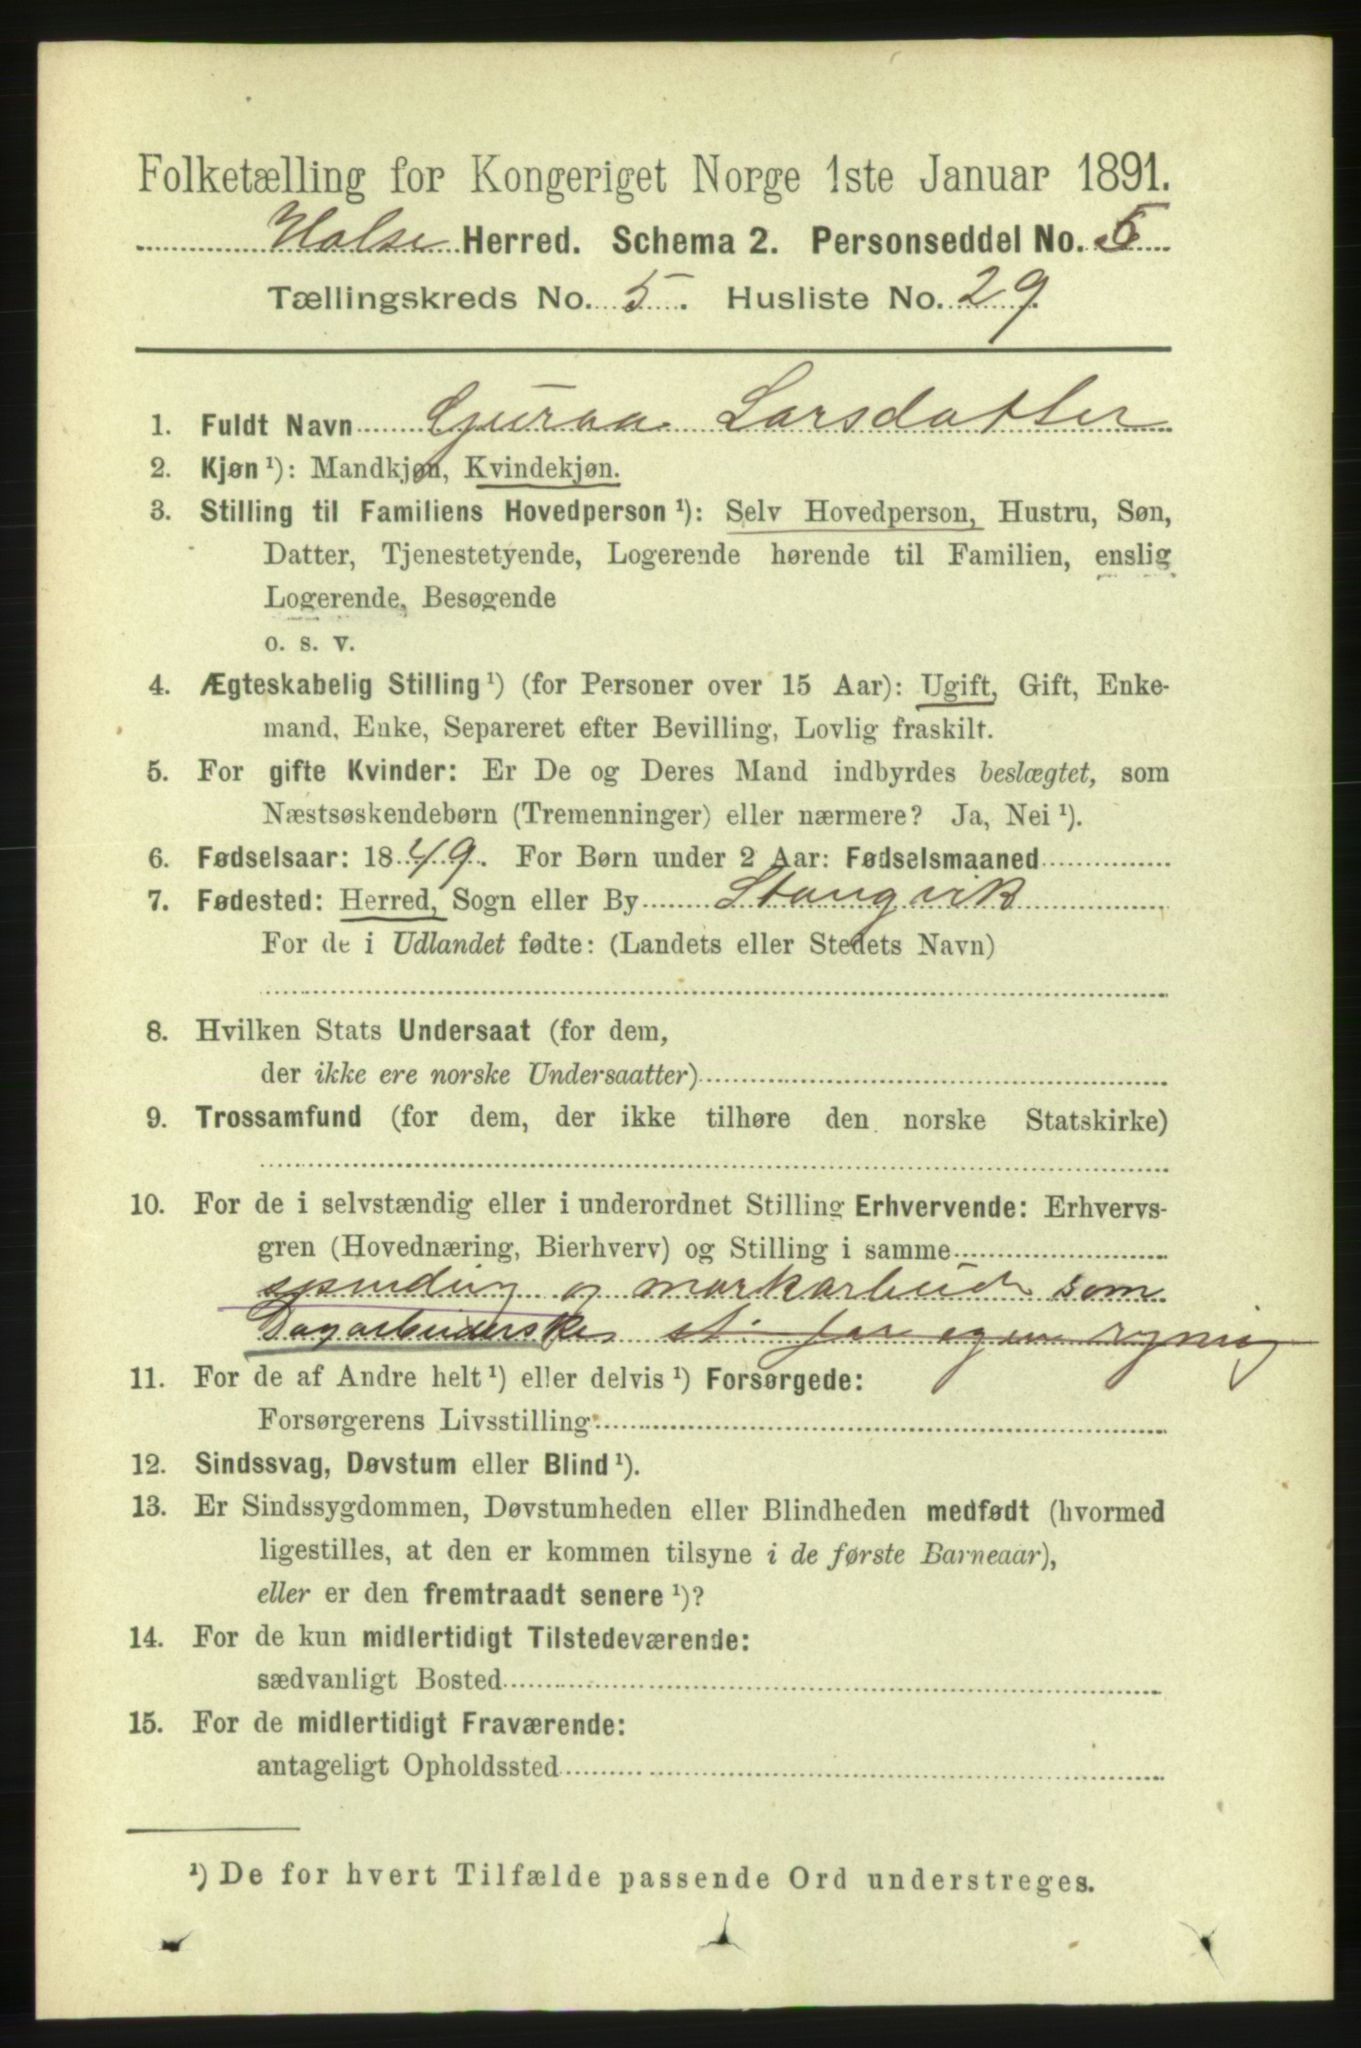 Folketælling for Kongeriget Norge 1ste Januar 1891.
Halse Herred. Schema 2. Personseddel No. 5
Tællingskreds No. 5. Husliste No. 29.
1. Fuldt Navn Guraa Larsdatter
2. Kjøn ¹): Mandkjøn, Kvindekjøn.
3. Stilling til Familiens Hovedperson ¹): Selv Hovedperson, Hustru, Søn,
Datter, Tjenestetyende, Logerende hørende til Familien, enslig
Logerende, Besøgende
o. s. v.
4. Ægteskabelig Stilling ¹) (for Personer over 15 Aar): Ugift, Gift, Enke-
mand, Enke, Separeret efter Bevilling, Lovlig fraskilt.
5. For gifte Kvinder: Er De og Deres Mand indbyrdes beslægtet, som
Næstsøskendebørn (Tremenninger) eller nærmere? Ja, Nei ¹).
6. Fødselsaar: 1849. For Børn under 2 Aar: Fødselsmaaned
7. Fødested: Herred, Sogn eller By Stangvik
For de i Udlandet fødte: (Landets eller Stedets Navn)
8. Hvilken Stats Undersaat (for dem,
der ikke ere norske Undersaatter)
9. Trossamfund (for dem, der ikke tilhøre den norske Statskirke)
10. For de i selvstændig eller i underordnet Stilling Erhvervende: Erhvervs-
gren (Hovednæring, Bierhverv) og Stilling i samme
spinding og markarbeide som
Dagarbeiderske for egen regning
11. For de af Andre helt ¹) eller delvis ¹) Forsørgede:
Forsørgerens Livsstilling:
12. Sindssvag, Døvstum eller Blind ¹).
13. Er Sindssygdommen, Døvstumheden eller Blindheden medfødt (hvormed
ligestilles, at den er kommen tilsyne i de første Barneaar),
eller er den fremtraadt senere ¹)?
14. For de kun midlertidigt Tilstedeværende:
sædvanligt Bosted
15. For de midlertidigt Fraværende:
antageligt Opholdssted
¹) De for hvert Tilfælde passende Ord understreges.